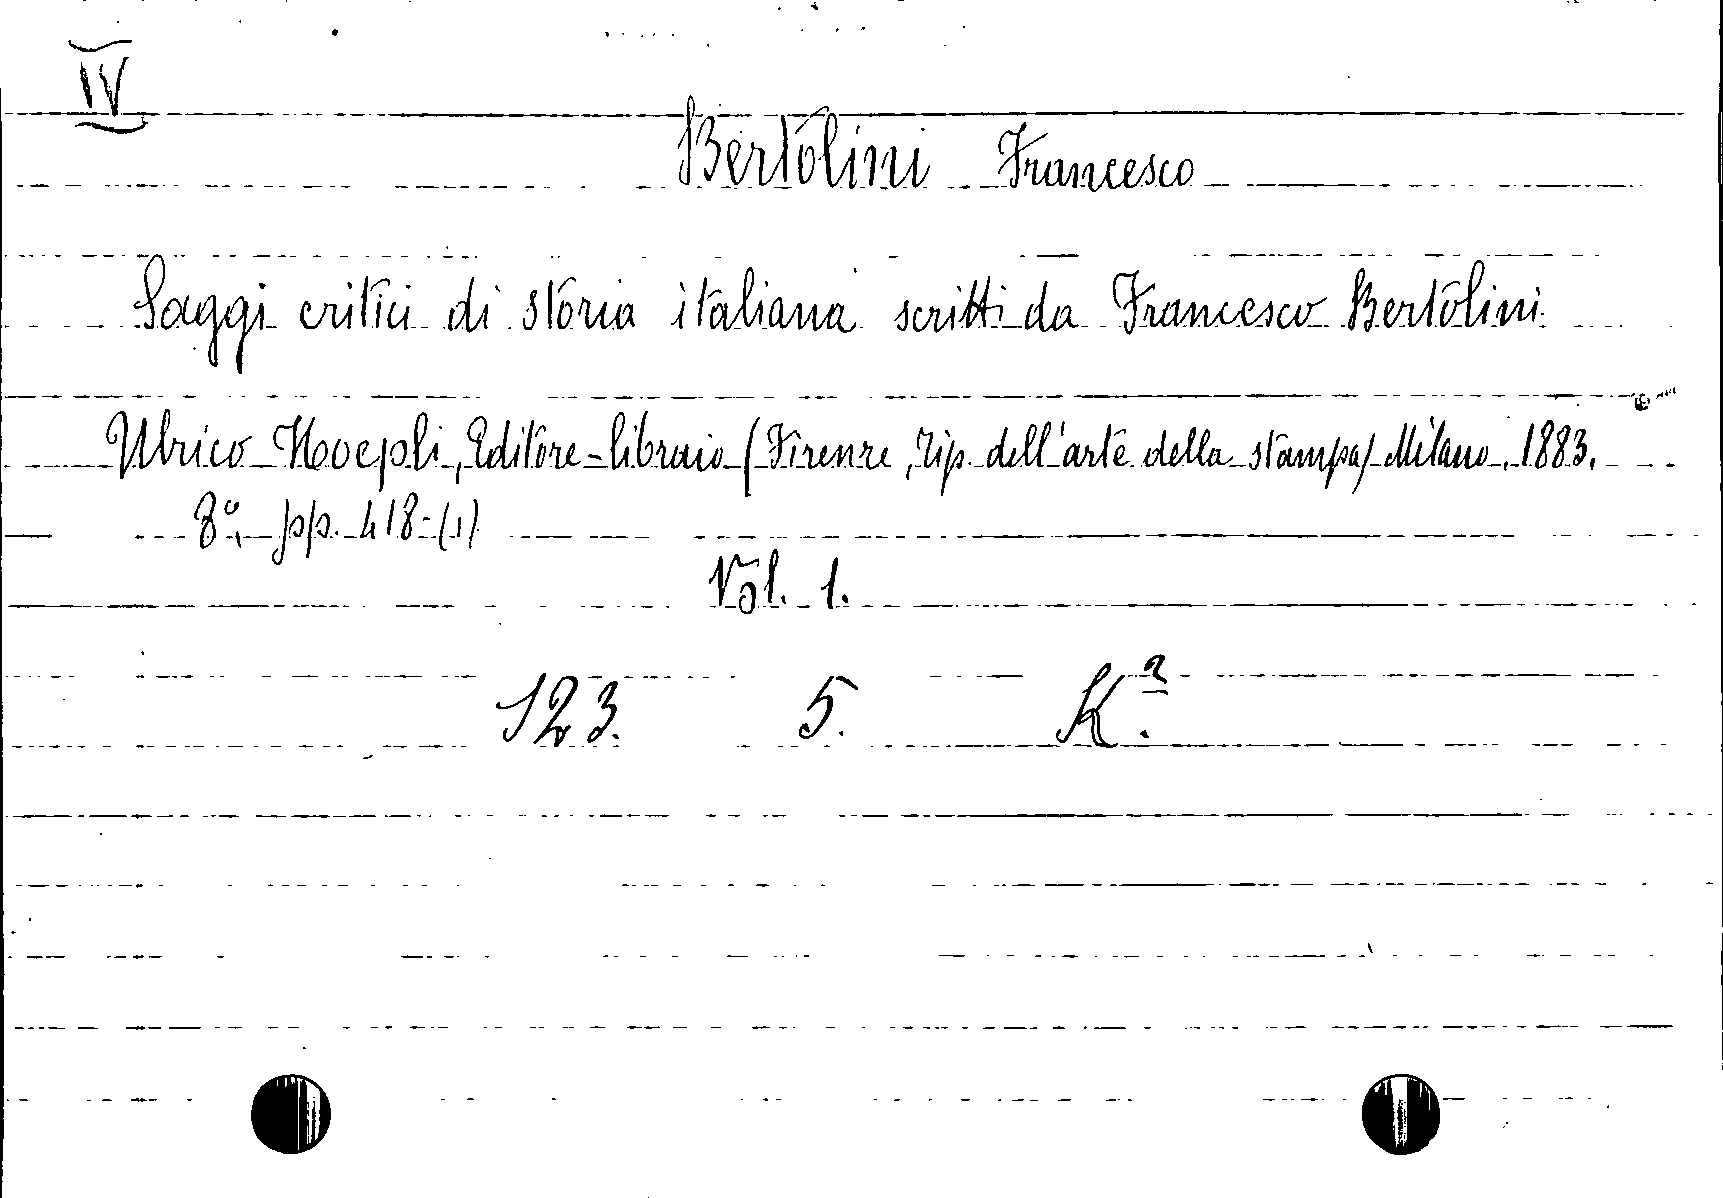 IV
Bertolini Francesco
Saggi critici di storia italiana scritti da Francesco Bertolini
Ulrico Hoepli, Editore-libraio (Firenze, Tip. dell'arte della stampa) Milano, 1883.
8°, pp. 418-(1)
Vol. 1.
123. 5. K².